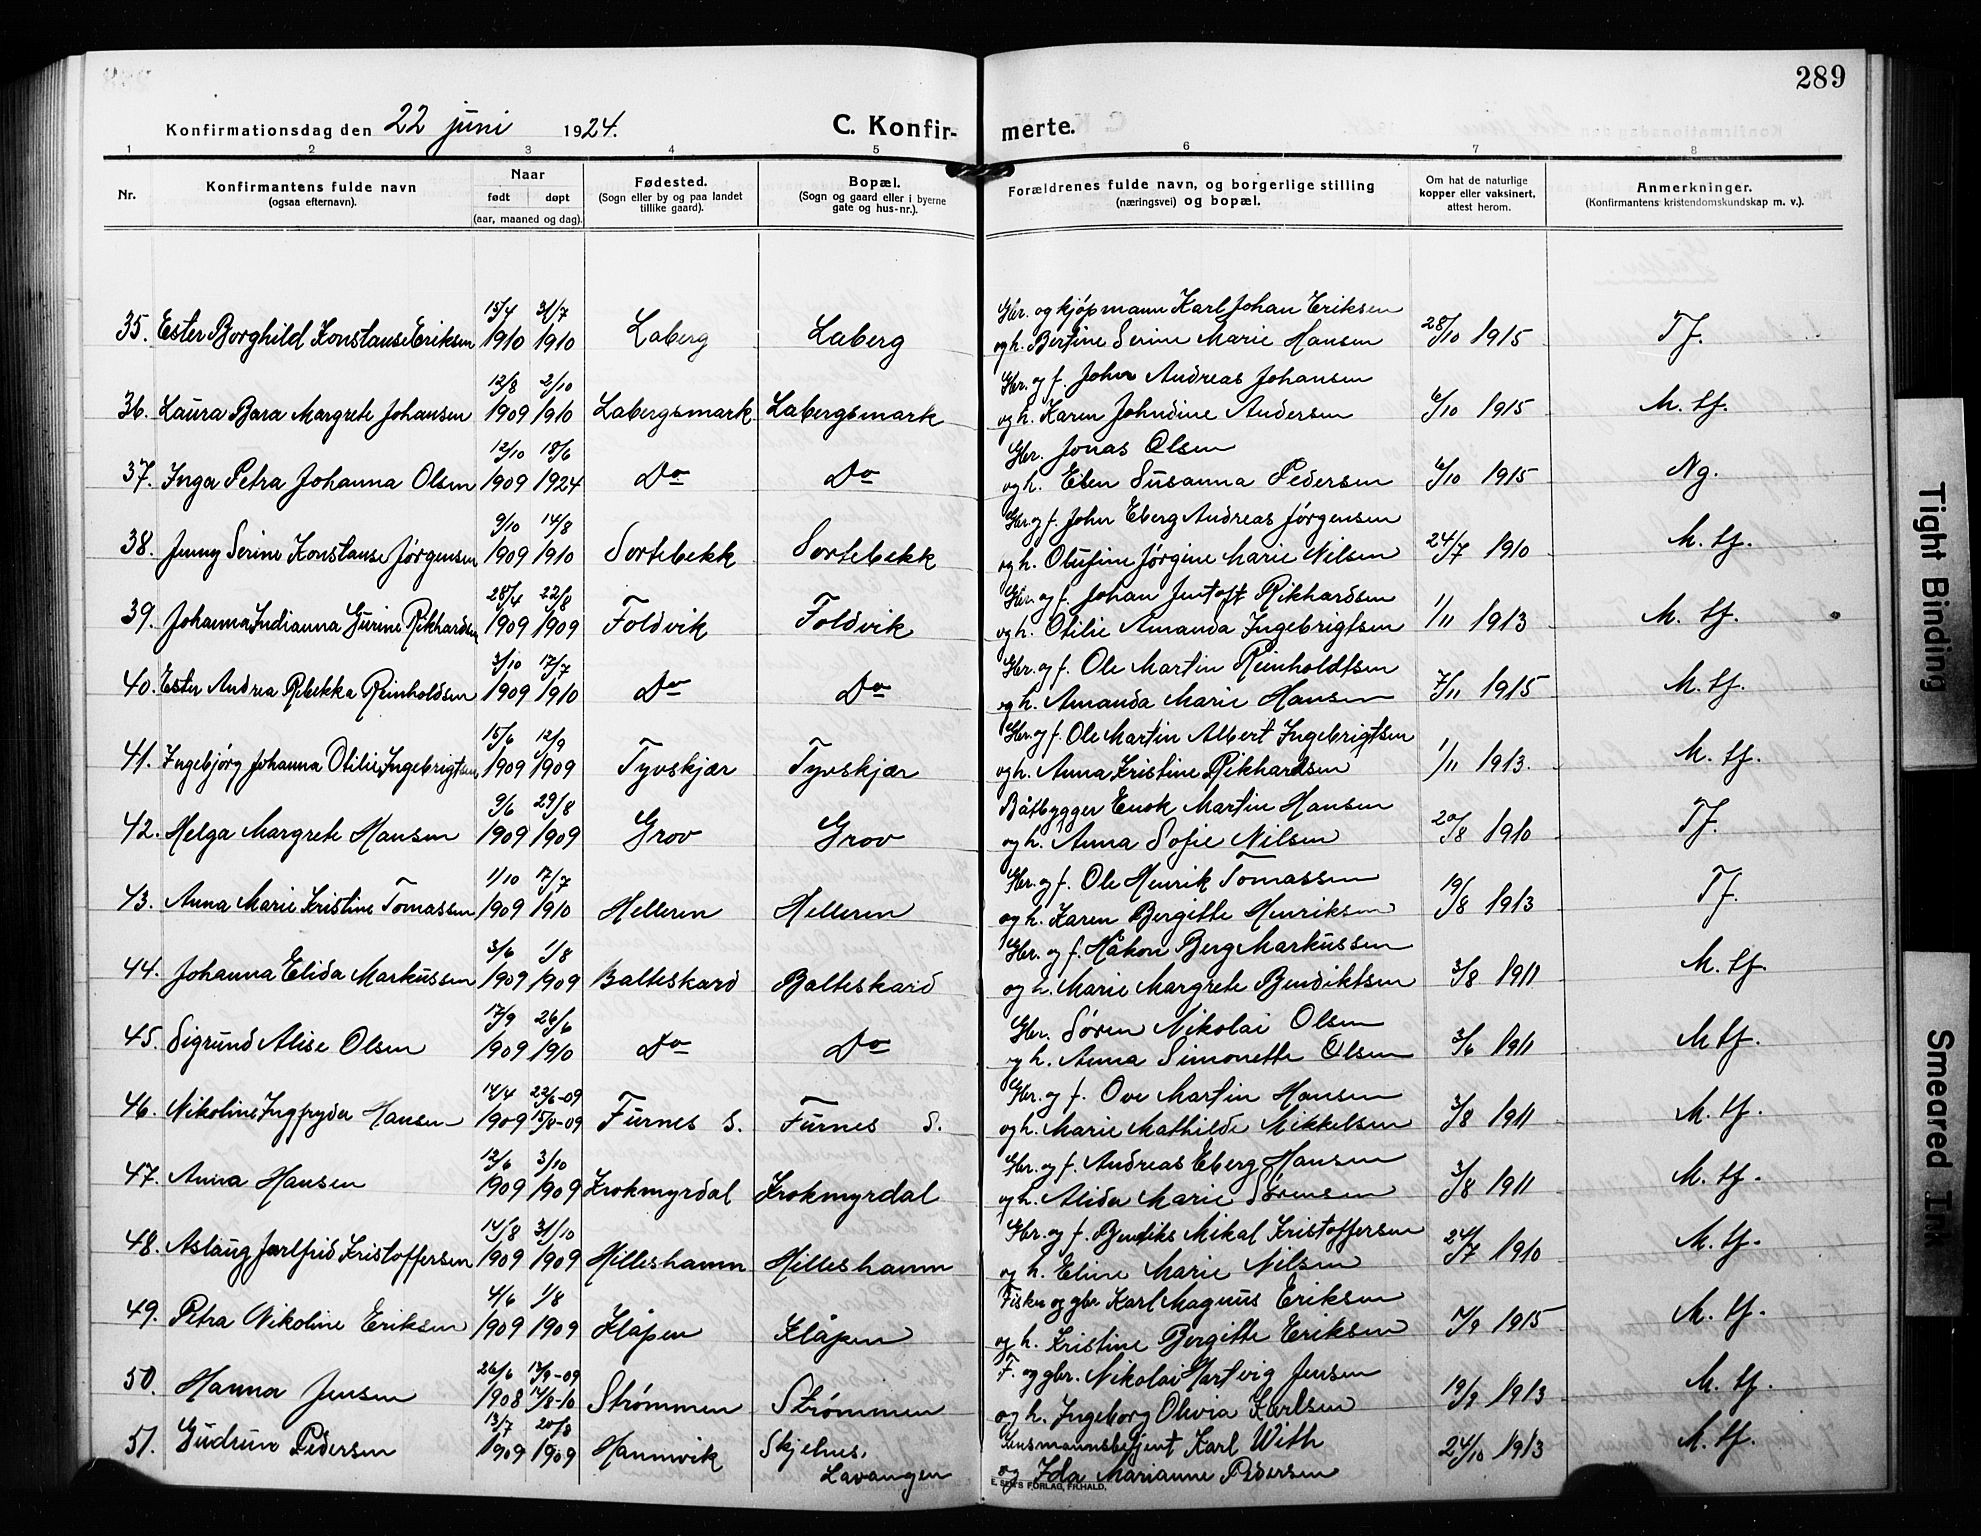 289
Konfirmationsdag den 22 juni 1924. C. Konfirmerte.
1 2 3 4 5 6 7 8
Nr. Konfirmantens fulde navn (ogsaa efternavn). Naar født døpt (aar, maaned og dag). Fødested. (Sogn eller by og paa landet tillike gaard). Bopæl. (Sogn og gaard eller i byerne gate og hus-nr.). Forældrenes fulde navn, og borgerlige stilling (næringsvei) og bopæl. Om hat de naturlige kopper eller vaksinert, attest herom. Anmerkninger. (Konfirmantens kristendomskundskap m. v.).
15/4 31/7 Gbr. og kjøpmann Karl Johan Eriksen
35. Ester Borghild Konstanse Eriksen 1910 1910 Laberg Laberg og h. Bertine Serine Marie Hansen 28/10 1915 T f.
12/8 2/10 Gbr. og f. Johan Andreas Johansen
36. Laura Bara Margrete Johansen 1909 1910 Labergsmark Labergsmark og h. Karen Johndine Andersen 6/10 1915 M. tf.
12/10 18/6 Gbr. Jonas Olsen
37. Inga Petra Johanna Olsen 1909 1924 Do Do og h. Elen Susanna Pedersen 6/10 1915 Ng.
9/10 14/8 Gbr. og f. Johan Eberg Andreas Jørgensen
38. Jenny Serine Konstanse Jørgensen 1909 1910 Sortebekk Sortebekk og h. Olufine Jørgine Marie Nilsen 24/7 1910 M. tf.
28/4 22/8 Gbr. og f. Johan Jentoft Rikhardsen
39. Johanna Indianna Gurine Rikhardsen 1909 1909 Foldvik Foldvik og h. Otilie Amanda Ingebrigtsen 1/11 1913 M. tf.
3/10 17/7 Gbr. og f. Ole Martin Reinholdtsen
40. Ester Andrea Rebekka Reinholdsen 1909 1910 Do Do og h. Amanda Marie Hansen 7/11 1915 M. tf.
15/6 12/9 Gbr. og f. Ole Martin Albert Ingebrigtsen
41. Ingebjørg Johanna Otilie Ingebrigtsen 1909 1909 Tyvskjær Tyvskjær og h. Anna Kristine Rikhardsen 1/11 1913. M. tf.
9/6 29/8 Båtbygger Enok Martin Hansen
42. Helga Margrete Hansen 1909 1909 Grov Grov og h. Anna Sofie Nilsen 20/8 1910 T f.
1/10 17/7 Gbr. og f. Ole Henrik Tomassen
43. Anna Marie Kristine Tomassen 1909 1910 Helleren Helleren og h. Karen Bergitte Henriksen 19/8 1913 T f.
3/6 1/8 Gbr. og f. Håkon Berg Markussen
44. Johanna Elida Markussen 1909 1909 Balteskard Balteskard og h. Marie Margrete Bendiktsen 3/8 1911 M. tf.
17/9 26/6 Gbr. Søren Nikolai Olsen
45. Sigrund Alise Olsen 1909 1910 Do Do og h. Anna Simonette Olsen 3/6 1911 M tf.
14/4 23/6-09 Gbr. og f. Ove Martin Hansen
46. Nikoline Ingfryda Hansen 1909 15/8-09 Furnes S. Furnes S. og h. Marie Mathilde Mikkelsen 3/8 1911 M. tf.
12/6 3/10 Gbr. og f. Andreas Eberg Hansen
47. Anna Hansen 1909 1909 Krokmyrdal Krokmyrdal og h. Alida Marie Sørensen 3/8 1911 M. tf.
14/8 31/10 Gbr. og f. Bendiks Mikal Kristoffersen
48. Aslaug Jarlfrid Kristoffersen 1909 1909 Hilleshamn Hilleshamn og h. Eline Marie Nilsen 24/7 1910 M. tf.
4/6 1/8 Fisker og gbr Karl Magnus Eriksen
49. Petra Nikoline Eriksen 1909 1909 Klápen Klåpen og h. Kristine Bergitte Eriksen 7/9 1915 M. tf.
26/6 17/9-09 F. og gbr. Nikolai Hartvig Jensen
50. Hanna Jensen 1908 14/8-10 Strømmen Strømmen og h. Ingeborg Olivia Karlsen 19/9 1913 M. tf.
13/7 20/8 Lensmannsbetjent Karl With
51. Gudrun Pedersen 1909 1909 Hamnvik Skjelnes, Lavangen og Ida Marianne Pedersen 24/10 1913 M. tf.
E. SEMS FORLAG, FR.HALD,
Tight Binding
Smeared Ink